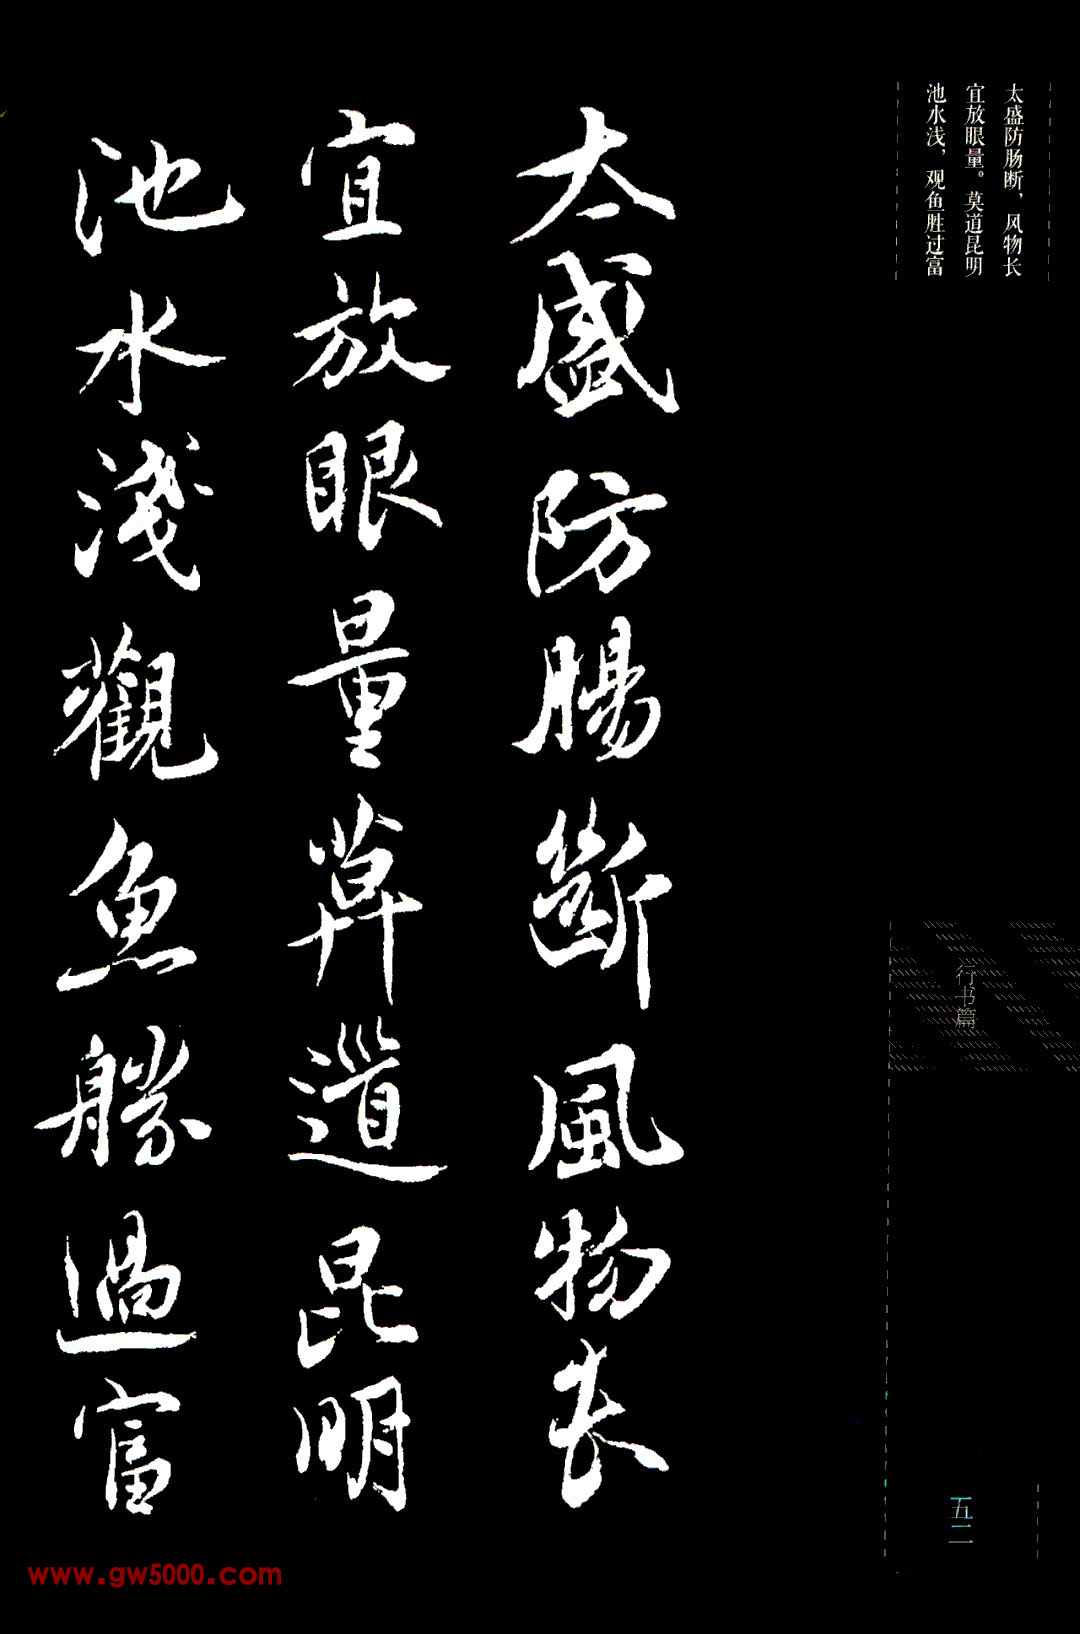 太盛防肠断，风物长
宜放眼量。莫道昆明
池水浅，观鱼胜过富
行书篇
五二
太盛防腸斷風物長
宜放眼量莫道昆明
池水淺觀魚勝過富
www.gw5000.com